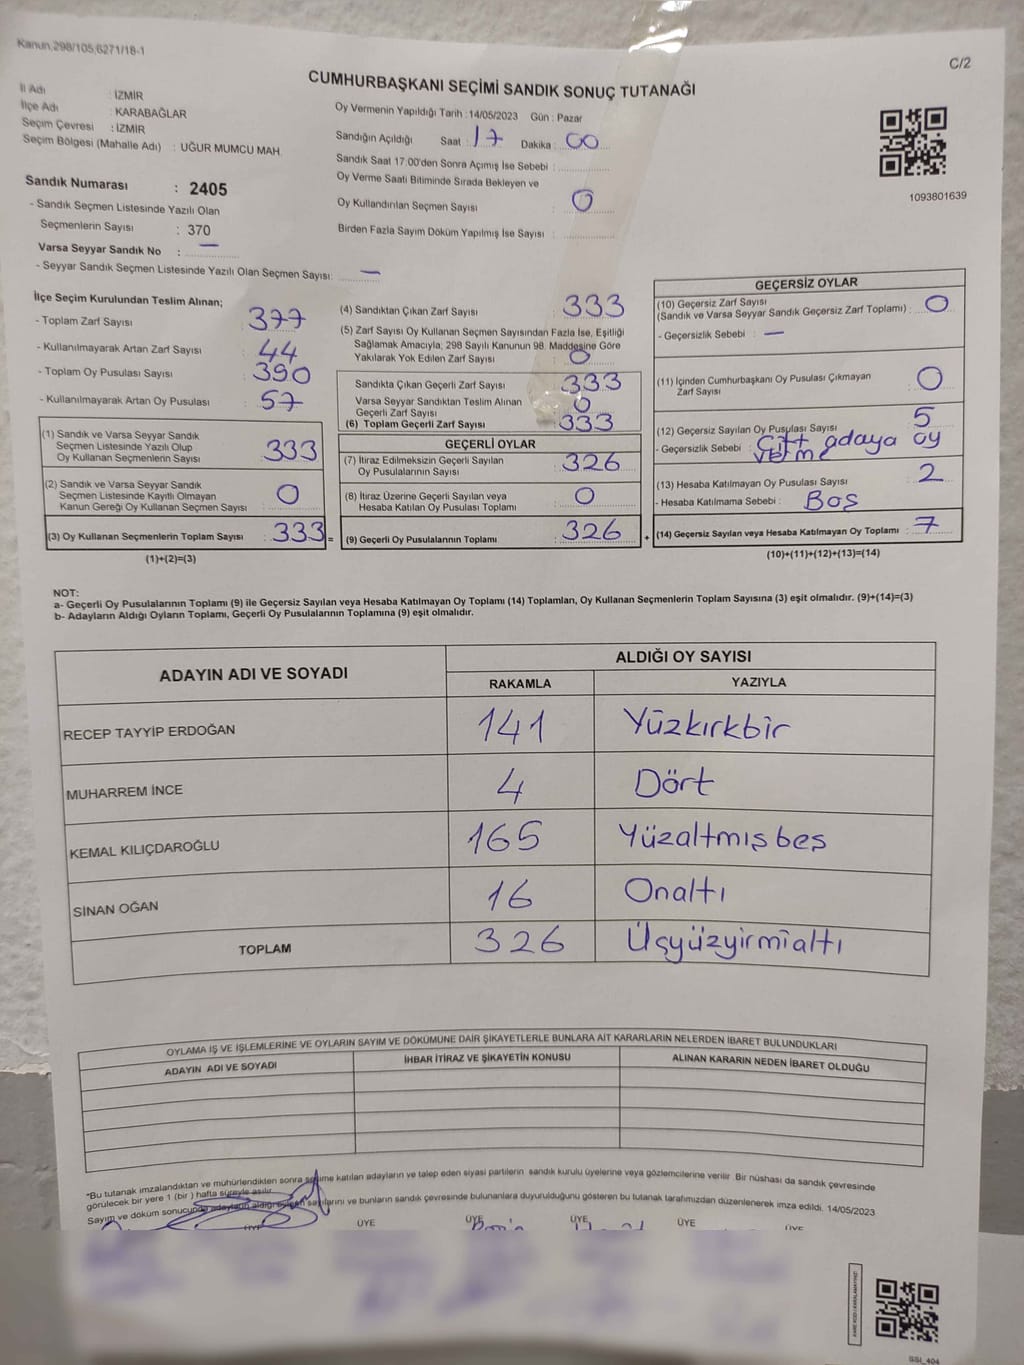 Kanun,298/105,6271/18-1
C/2
CUMHURBAŞKANI SEÇİMİ SANDIK SONUÇ TUTANAĞI
İl Adı : İZMİR
İlçe Adı : KARABAĞLAR
Seçim Çevresi : İZMİR
Seçim Bölgesi (Mahalle Adı) : UĞUR MUMCU MAH.
Sandık Numarası : 2405
- Sandık Seçmen Listesinde Yazılı Olan
Seçmenlerin Sayısı : 370
Varsa Seyyar Sandık No : —
- Seyyar Sandık Seçmen Listesinde Yazılı Olan Seçmen Sayısı: —
Oy Vermenin Yapıldığı Tarih : 14/05/2023 Gün : Pazar
Sandığın Açıldığı Saat : 17 Dakika : 00
Sandık Saat 17:00'den Sonra Açımış İse Sebebi :
Oy Verme Saati Bitiminde Sırada Bekleyen ve
Oy Kullandırılan Seçmen Sayısı : 0
Birden Fazla Sayım Döküm Yapılmış İse Sayısı :
1093801639
İlçe Seçim Kurulundan Teslim Alınan;
- Toplam Zarf Sayısı : 377
- Kullanılmayarak Artan Zarf Sayısı : 44
- Toplam Oy Pusulası Sayısı : 390
- Kullanılmayarak Artan Oy Pusulası : 57
(1) Sandık ve Varsa Seyyar Sandık
Seçmen Listesinde Yazılı Olup
Oy Kullanan Seçmenlerin Sayısı : 333
(2) Sandık ve Varsa Seyyar Sandık
Seçmen Listesinde Kayıtlı Olmayan
Kanun Gereği Oy Kullanan Seçmen Sayısı : 0
(3) Oy Kullanan Seçmenlerin Toplam Sayısı : 333 =
(1)+(2)=(3)
(4) Sandıktan Çıkan Zarf Sayısı : 333
(5) Zarf Sayısı Oy Kullanan Seçmen Sayısından Fazla İse, Eşitliği
Sağlamak Amacıyla; 298 Sayılı Kanunun 98. Maddesine Göre
Yakılarak Yok Edilen Zarf Sayısı : 0
Sandıkta Çıkan Geçerli Zarf Sayısı : 333
Varsa Seyyar Sandıktan Teslim Alınan
Geçerli Zarf Sayısı : 0
(6) Toplam Geçerli Zarf Sayısı : 333
GEÇERLİ OYLAR
(7) İtiraz Edilmeksizin Geçerli Sayılan
Oy Pusulalarının Sayısı : 326
(8) İtiraz Üzerine Geçerli Sayılan veya
Hesaba Katılan Oy Pusulası Toplamı : 0
(9) Geçerli Oy Pusulalarının Toplamı : 326 +
GEÇERSİZ OYLAR
(10) Geçersiz Zarf Sayısı
(Sandık ve Varsa Seyyar Sandık Geçersiz Zarf Toplamı) : 0
- Geçersizlik Sebebi : —
(11) İçinden Cumhurbaşkanı Oy Pusulası Çıkmayan
Zarf Sayısı : 0
(12) Geçersiz Sayılan Oy Pusulası Sayısı : 5
- Geçersizlik Sebebi : Çift adaya oy
verme
(13) Hesaba Katılmayan Oy Pusulası Sayısı : 2
- Hesaba Katılmama Sebebi : Boş
(14) Geçersiz Sayılan veya Hesaba Katılmayan Oy Toplamı : 7
(10)+(11)+(12)+(13)=(14)
NOT:
a- Geçerli Oy Pusulalarının Toplamı (9) ile Geçersiz Sayılan veya Hesaba Katılmayan Oy Toplamı (14) Toplamları, Oy Kullanan Seçmenlerin Toplam Sayısına (3) eşit olmalıdır. (9)+(14)=(3)
b- Adayların Aldığı Oyların Toplamı, Geçerli Oy Pusulalarının Toplamına (9) eşit olmalıdır.
ADAYIN ADI VE SOYADI
ALDIĞI OY SAYISI
RAKAMLA YAZIYLA
RECEP TAYYİP ERDOĞAN 141 Yüzkırkbir
MUHARREM İNCE 4 Dört
KEMAL KILIÇDAROĞLU 165 Yüzaltmışbeş
SİNAN OĞAN 16 Onaltı
TOPLAM 326 Üçyüzyirmialtı
OYLAMA İŞ VE İŞLEMLERİNE VE OYLARIN SAYIM VE DÖKÜMÜNE DAİR ŞİKAYETLERLE BUNLARA AİT KARARLARIN NELERDEN İBARET BULUNDUKLARI
ADAYIN ADI VE SOYADI İHBAR İTİRAZ VE ŞİKAYETİN KONUSU ALINAN KARARIN NEDEN İBARET OLDUĞU
*Bu tutanak imzalandıktan ve mühürlendikten sonra seçime katılan adayların ve talep eden siyasi partilerin sandık kurulu üyelerine veya gözlemcilerine verilir. Bir nüshası da sandık çevresinde
görülecek bir yere 1 (bir ) hafta süreyle asılır.
Sayım ve döküm sonucunda adayların aldığı oyların sayılarını ve bunların sandık çevresinde bulunanlara duyurulduğunu gösteren bu tutanak tarafımızdan düzenlenerek imza edildi. 14/05/2023
ÜYE ÜYE ÜYE ÜYE ÜYE ÜYE
SSI_404